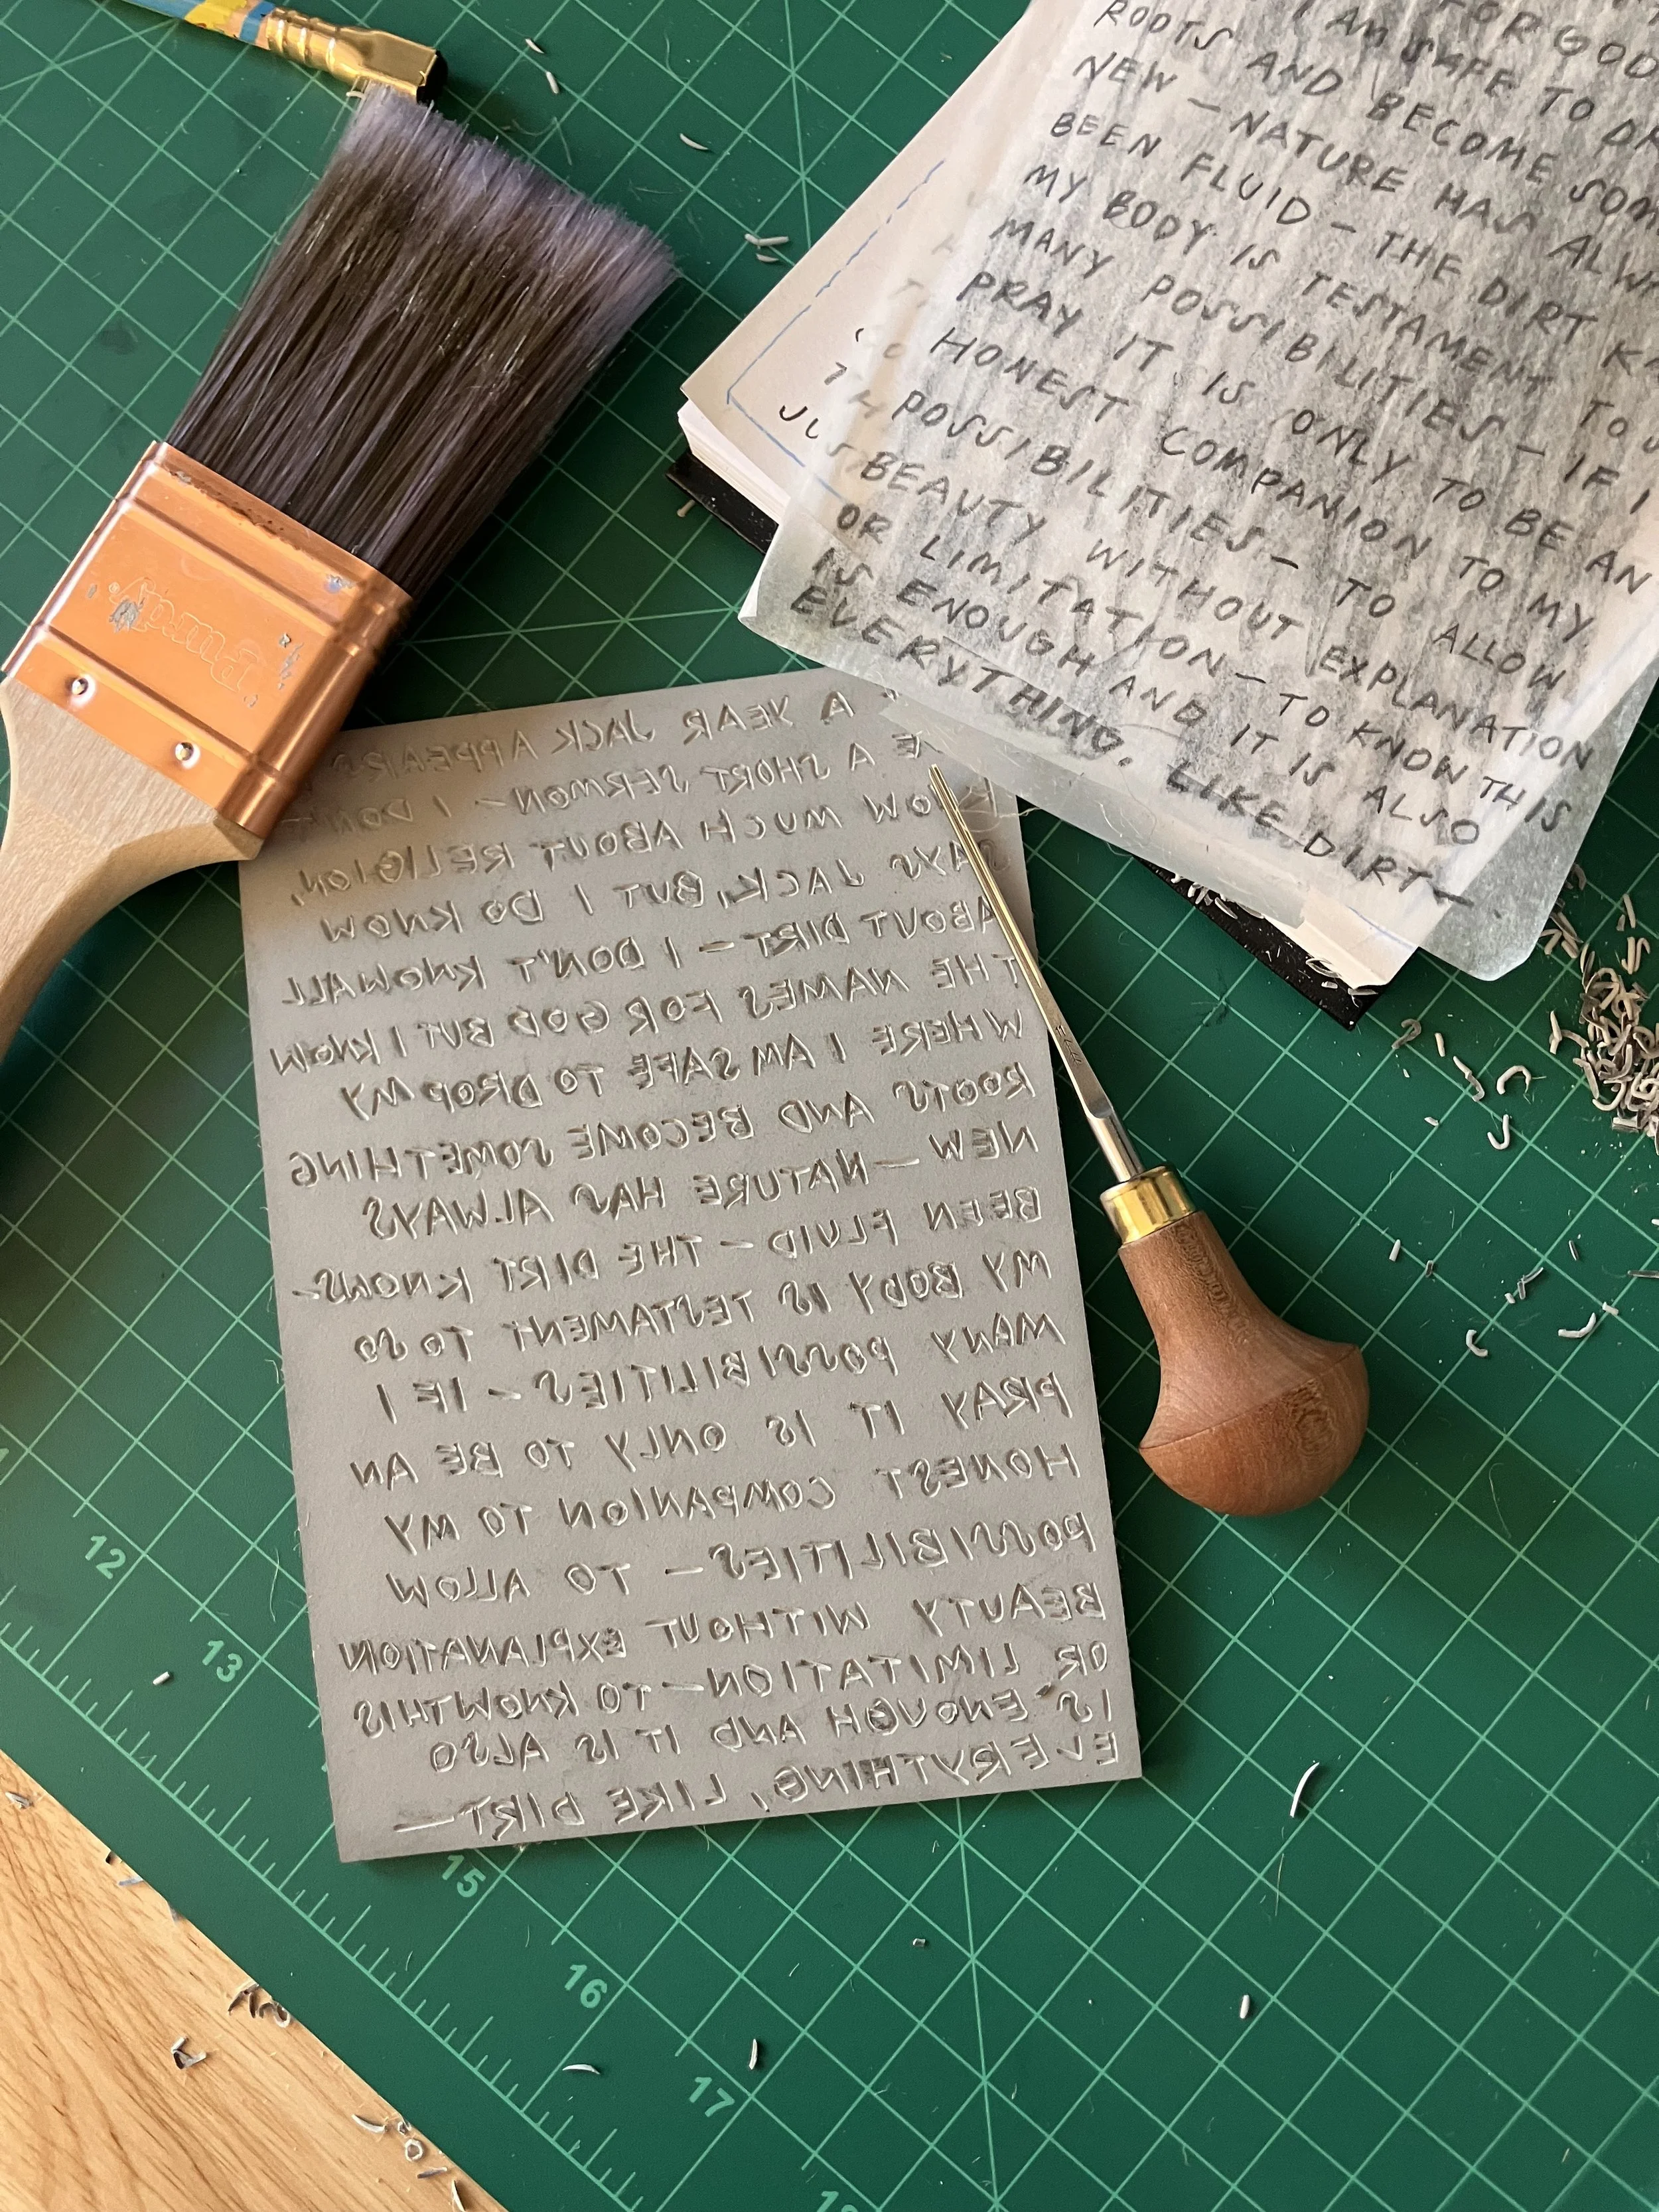 FOR GOD
I AM SAFE TO DR
ROOTS AND BECOME SOM
NEW — NATURE HAS ALWA
BEEN FLUID — THE DIRT KN
MY BODY IS TESTAMENT TO S
MANY POSSIBILITIES — IF I
PRAY IT IS ONLY TO BE AN
HONEST COMPANION TO MY
POSSIBILITIES — TO ALLOW
BEAUTY WITHOUT EXPLANATION
OR LIMITATION — TO KNOW THIS
IS ENOUGH AND IT IS ALSO
EVERYTHING, LIKE DIRT—
Purdy
A YEAR JACK APPEARS
A SHORT SERMON — I DON'T
KNOW MUCH ABOUT RELIGION,
SAYS JACK, BUT I DO KNOW
ABOUT DIRT — I DON'T KNOW ALL
THE NAMES FOR GOD BUT I KNOW
WHERE I AM SAFE TO DROP MY
ROOTS AND BECOME SOMETHING
NEW — NATURE HAS ALWAYS
BEEN FLUID — THE DIRT KNOWS-
MY BODY IS TESTAMENT TO SO
MANY POSSIBILITIES - IF I
PRAY IT IS ONLY TO BE AN
HONEST COMPANION TO MY
POSSIBILITIES — TO ALLOW
BEAUTY WITHOUT EXPLANATION
OR LIMITATION — TO KNOW THIS
IS ENOUGH AND IT IS ALSO
EVERYTHING, LIKE DIRT—
12
13
15
16
17